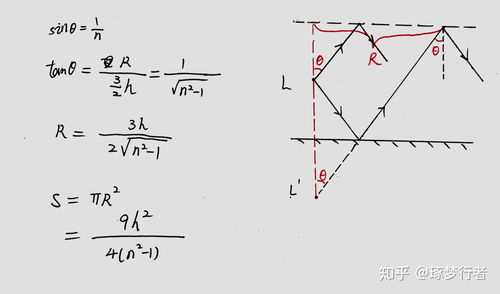 sinθ = 1/n
tanθ = R / (3/2 h) = 1 / √(n²-1)
R = 3h / 2√(n²-1)
S = πR²
= 9h² / 4(n²-1)
θ R θ
L
θ
L'
知乎 @琢梦行者